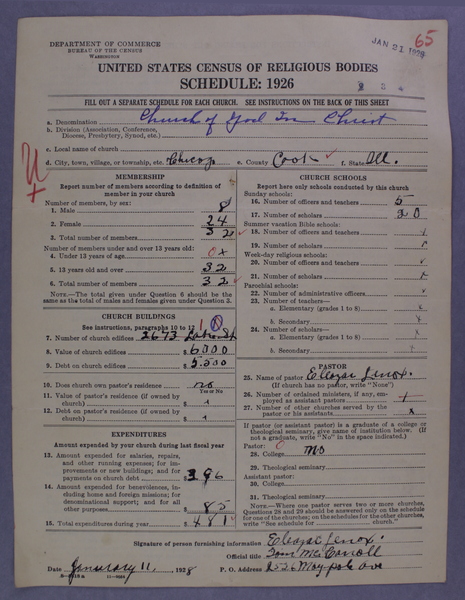 DEPARTMENT OF COMMERCE
BUREAU OF THE CENSUS
WASHINGTON
JAN 21 1928
65
UNITED STATES CENSUS OF RELIGIOUS BODIES
SCHEDULE: 1926
FILL OUT A SEPARATE SCHEDULE FOR EACH CHURCH. SEE INSTRUCTIONS ON THE BACK OF THIS SHEET
a. Denomination Church of God In Christ
b. Division (Association, Conference, Diocese, Presbytery, Synod, etc.)
c. Local name of church
d. City, town, village, or township, etc. Chicago e. County Cook f. State Ill.
MEMBERSHIP
Report number of members according to definition of member in your church
Number of members, by sex:
1. Male 8
2. Female 24
3. Total number of members 32
Number of members under and over 13 years old:
4. Under 13 years of age 0 x
5. 13 years old and over 32
6. Total number of members 32
NOTE.—The total given under Question 6 should be the same as the total of males and females given under Question 3.
CHURCH BUILDINGS
See instructions, paragraphs 10 to 12
7. Number of church edifices 3673
8. Value of church edifices $ 6000
9. Debt on church edifices $ 5.500
10. Does church own pastor's residence? no
Yes or No
11. Value of pastor's residence (if owned by church) $
12. Debt on pastor's residence (if owned by church) $
EXPENDITURES
Amount expended by your church during last fiscal year
13. Amount expended for salaries, repairs, and other running expenses; for improvements or new buildings; and for payments on church debt $ 396
14. Amount expended for benevolences, including home and foreign missions; for denominational support; and for all other purposes $ 85
15. Total expenditures during year $ 481
CHURCH SCHOOLS
Report here only schools conducted by this church
Sunday schools:
16. Number of officers and teachers 5
17. Number of scholars 20
Summer vacation Bible schools:
18. Number of officers and teachers x
19. Number of scholars x
Week-day religious schools:
20. Number of officers and teachers x
21. Number of scholars x
Parochial schools:
22. Number of administrative officers x
23. Number of teachers—
a. Elementary (grades 1 to 8) x
b. Secondary x
24. Number of scholars—
a. Elementary (grades 1 to 8) x
b. Secondary x
PASTOR
25. Name of pastor Eleazar Lenox.
(If church has no pastor, write "None")
26. Number of ordained ministers, if any, employed as assistant pastors
27. Number of other churches served by the pastor or his assistants x
If pastor (or assistant pastor) is a graduate of a college or theological seminary, give name of institution below. (If not a graduate, write "No" in the space indicated.)
Pastor:
28. College no
29. Theological seminary
Assistant pastor:
30. College
31. Theological seminary
NOTE.—Where one pastor serves two or more churches, Questions 28 and 29 should be answered only on the schedule for one of the churches; on the schedules for the other churches, write "See schedule for church."
Signature of person furnishing information Eleazar Lenox.
Official title
Date January 11, 1928 P. O. Address 2526 Maypole Ave